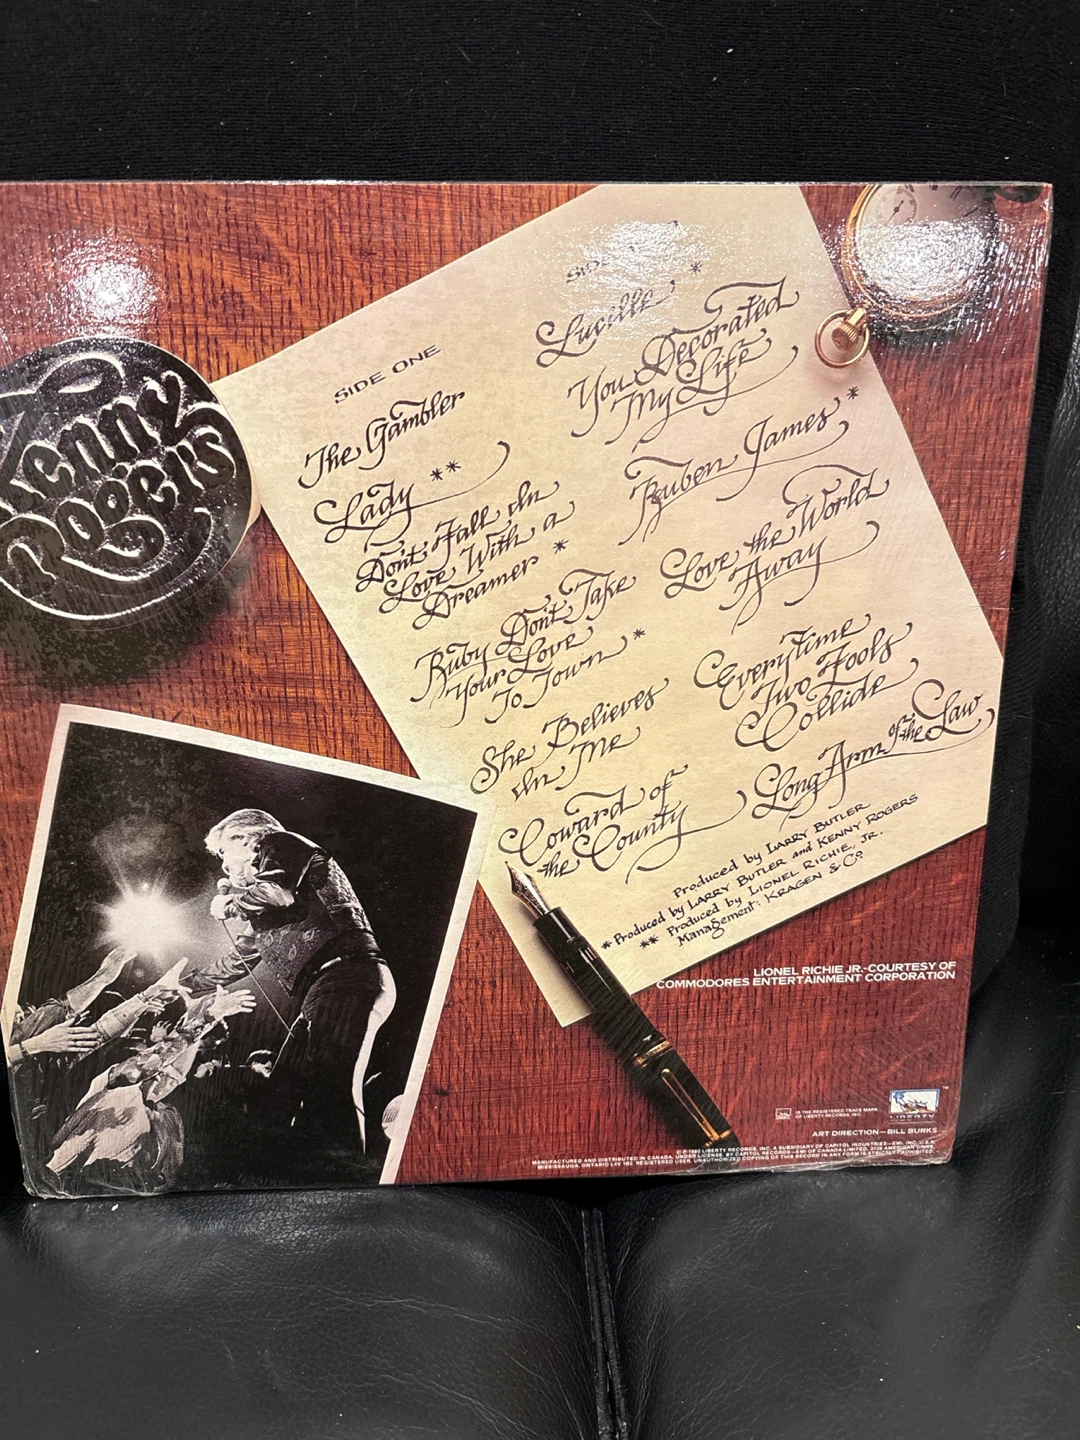 Kenny
Rogers
SIDE ONE
The Gambler
Lady **
Don't Fall In
Love With a
Dreamer *
Ruby Don't Take
Your Love
To Town *
She Believes
In Me
Coward of
the County
Lucille *
You Decorated
My Life
Reuben James *
Love the World
Away
Everytime
Two Fools
Collide
Long Arm of the Law
Produced by LARRY BUTLER
* Produced by LARRY BUTLER and KENNY ROGERS
** Produced by LIONEL RICHIE, JR.
Management: KRAGEN & CO.
LIONEL RICHIE JR.-COURTESY OF
COMMODORES ENTERTAINMENT CORPORATION
IS THE REGISTERED TRADE MARK
OF LIBERTY RECORDS, INC.
LIBERTY
TM
ART DIRECTION—BILL BURKS
© ℗ 1980 LIBERTY RECORDS, INC. A SUBSIDIARY OF CAPITOL INDUSTRIES—EMI, INC. U.S.A.
MANUFACTURED AND DISTRIBUTED IN CANADA, UNDER LICENSE, BY CAPITOL RECORDS—EMI OF CANADA LIMITED, 3109 AMERICAN DRIVE,
MISSISSAUGA, ONTARIO L4V 1B2. REGISTERED USER. UNAUTHORIZED COPYING OF THIS RECORD IN ANY FORM IS STRICTLY PROHIBITED.